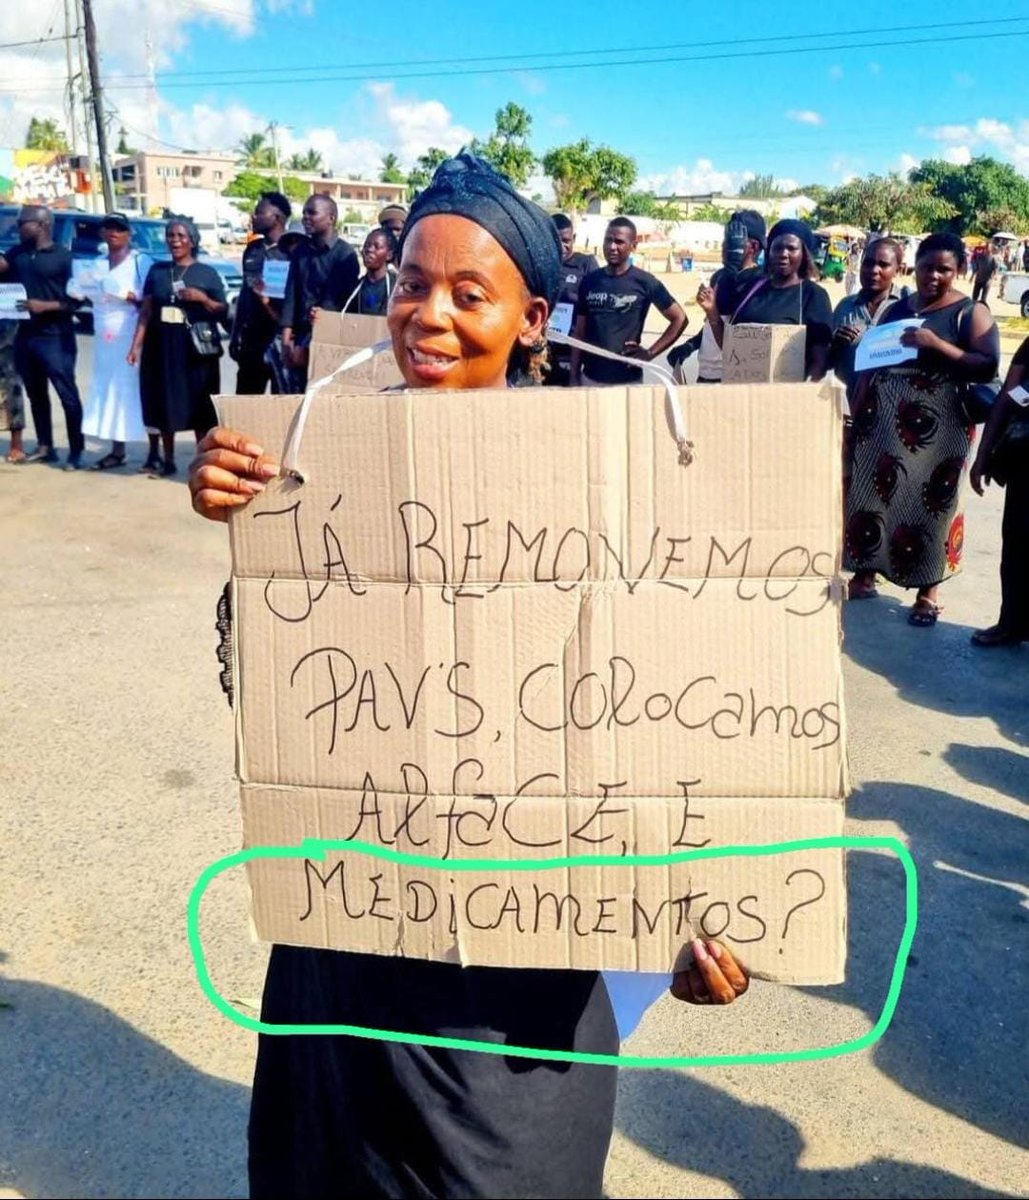 JÁ REMOVEMOS
PAV'S, COLOCAMOS
ALfaCE, E
MEDiCAMENTOS?
Jeep